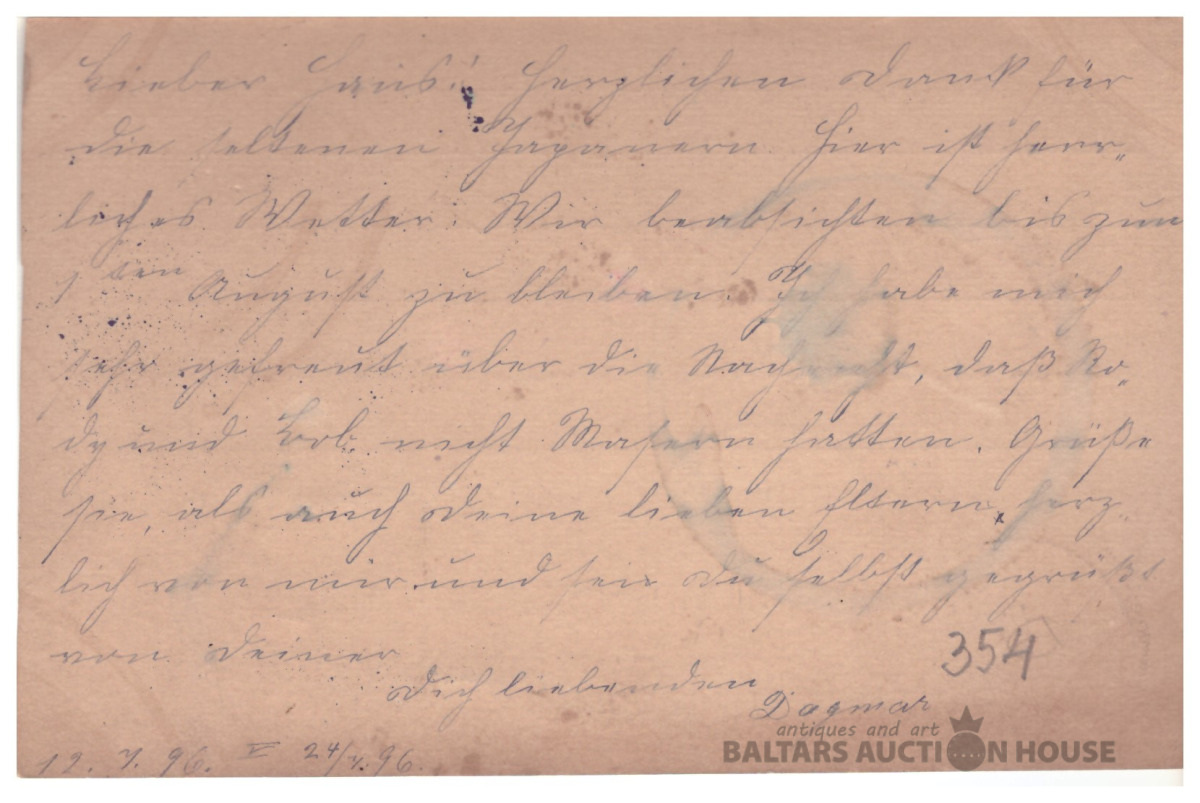 Lieber Hans! Herzlichen Dank für
die seltenen Japanern. Hier ist herr„
liches Wetter. Wir beabsichten bis zum
1ten August zu bleiben. Ich habe mich
sehr gefreut über die Nachricht, daß Ro„
dy und Bob nicht Masern hatten. Grüße
sie, als auch Deine lieben Eltern, herz„
lich von mir und sei Du selbst gegrüßt
von Deiner
Dich liebenden
Dagmar
354
12. 7. 96. 24/7. 96.
antiques and art
BALTARS AUCTION HOUSE